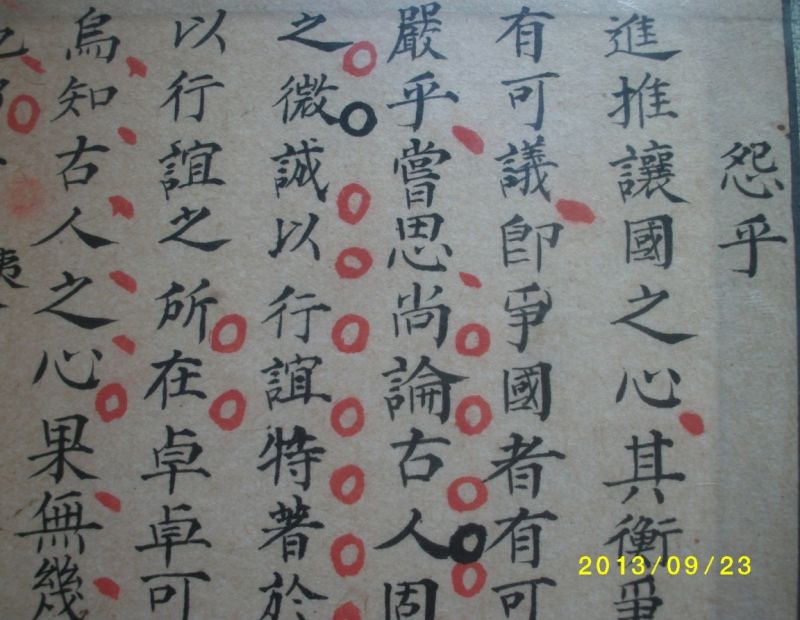 怨乎
進推讓國之心其衡爭
有可議即爭國者有可
嚴乎嘗思尚論古人固
之微誠以行誼特著於
以行誼之所在卓卓可
烏知古人之心果無幾
2013/09/23